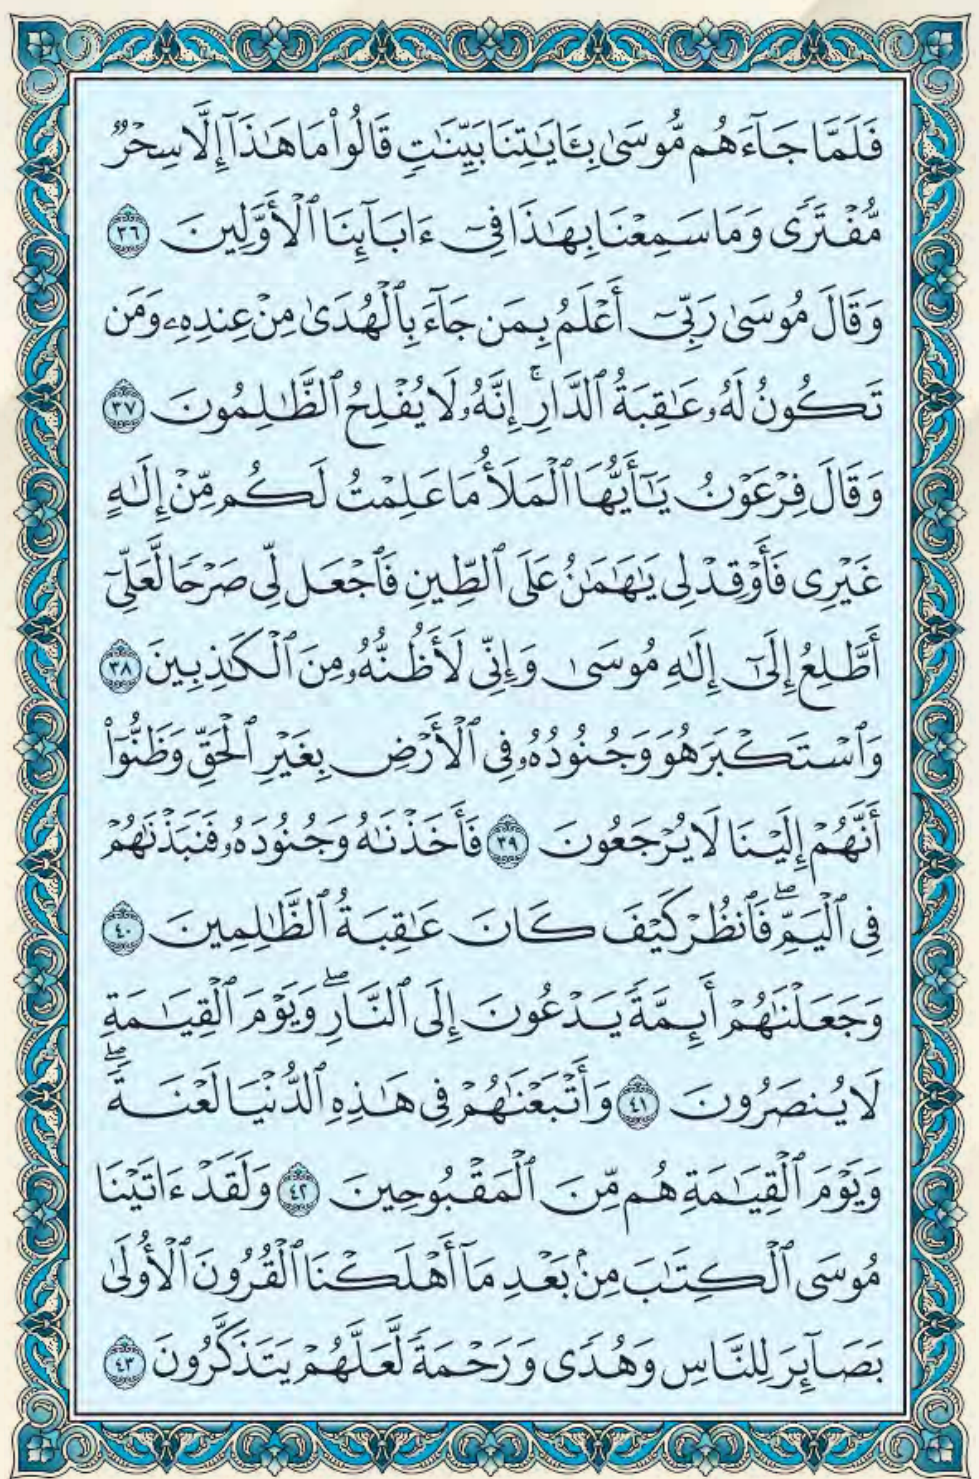 فَلَمَّا جَآءَهُم مُّوسَىٰ بِـَٔايَـٰتِنَا بَيِّنَـٰتٍ قَالُوا۟ مَا هَـٰذَآ إِلَّا سِحْرٌ
مُّفْتَرًى وَمَا سَمِعْنَا بِهَـٰذَا فِىٓ ءَابَآئِنَا ٱلْأَوَّلِينَ ٣٦
وَقَالَ مُوسَىٰ رَبِّىٓ أَعْلَمُ بِمَن جَآءَ بِٱلْهُدَىٰ مِنْ عِندِهِۦ وَمَن
تَكُونُ لَهُۥ عَـٰقِبَةُ ٱلدَّارِ ۚ إِنَّهُۥ لَا يُفْلِحُ ٱلظَّـٰلِمُونَ ٣٧
وَقَالَ فِرْعَوْنُ يَـٰٓأَيُّهَا ٱلْمَلَأُ مَا عَلِمْتُ لَكُم مِّنْ إِلَـٰهٍ
غَيْرِى فَأَوْقِدْ لِى يَـٰهَـٰمَـٰنُ عَلَى ٱلطِّينِ فَٱجْعَل لِّى صَرْحًا لَّعَلِّىٓ
أَطَّلِعُ إِلَىٰٓ إِلَـٰهِ مُوسَىٰ وَإِنِّى لَأَظُنُّهُۥ مِنَ ٱلْكَـٰذِبِينَ ٣٨
وَٱسْتَكْبَرَ هُوَ وَجُنُودُهُۥ فِى ٱلْأَرْضِ بِغَيْرِ ٱلْحَقِّ وَظَنُّوٓا۟
أَنَّهُمْ إِلَيْنَا لَا يُرْجَعُونَ ٣٩ فَأَخَذْنَـٰهُ وَجُنُودَهُۥ فَنَبَذْنَـٰهُمْ
فِى ٱلْيَمِّ ۖ فَٱنظُرْ كَيْفَ كَانَ عَـٰقِبَةُ ٱلظَّـٰلِمِينَ ٤٠
وَجَعَلْنَـٰهُمْ أَئِمَّةً يَدْعُونَ إِلَى ٱلنَّارِ ۖ وَيَوْمَ ٱلْقِيَـٰمَةِ
لَا يُنصَرُونَ ٤١ وَأَتْبَعْنَـٰهُمْ فِى هَـٰذِهِ ٱلدُّنْيَا لَعْنَةً ۖ
وَيَوْمَ ٱلْقِيَـٰمَةِ هُم مِّنَ ٱلْمَقْبُوحِينَ ٤٢ وَلَقَدْ ءَاتَيْنَا
مُوسَى ٱلْكِتَـٰبَ مِنۢ بَعْدِ مَآ أَهْلَكْنَا ٱلْقُرُونَ ٱلْأُولَىٰ
بَصَآئِرَ لِلنَّاسِ وَهُدًى وَرَحْمَةً لَّعَلَّهُمْ يَتَذَكَّرُونَ ٤٣